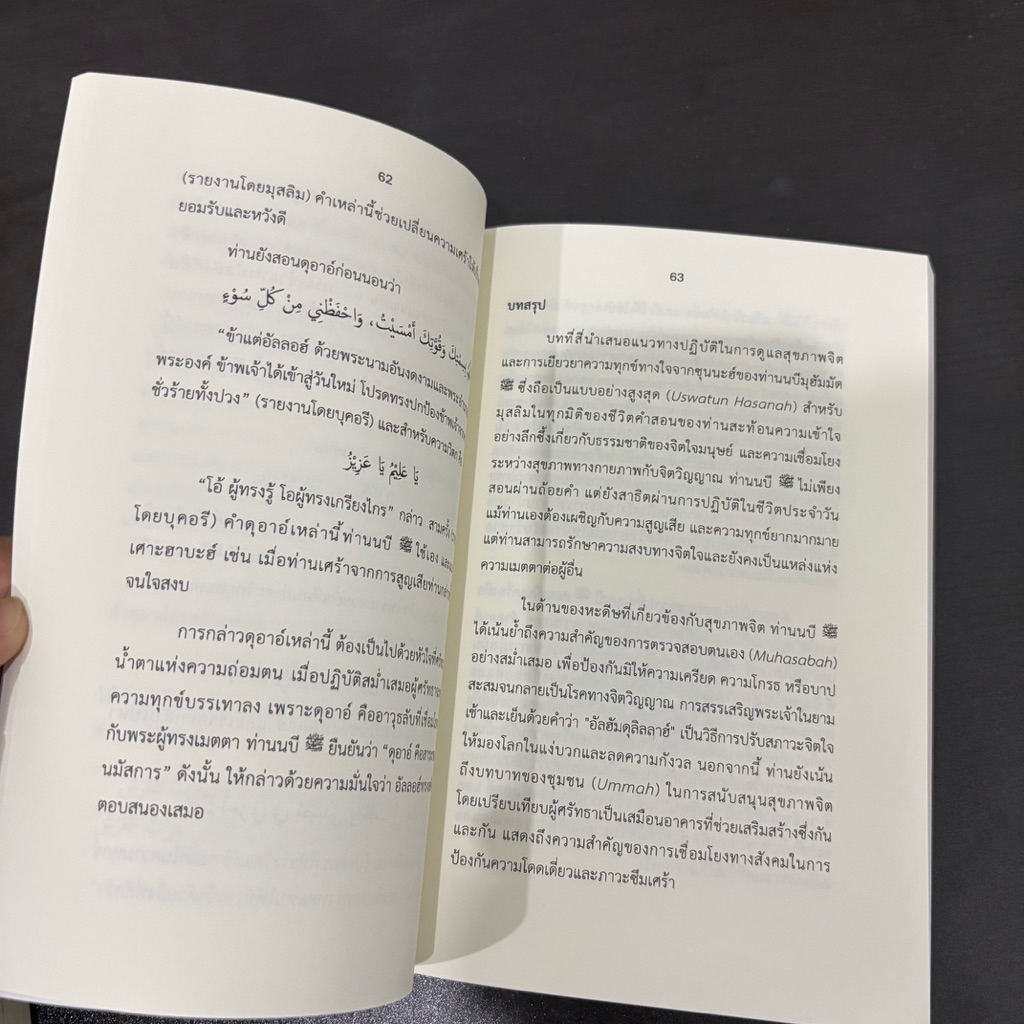 62
(รายงานโดยมุสลิม) คำเหล่านี้ช่วยเปลี่ยนความเศร้าให้เป็น
ยอมรับและหวังดี
ท่านยังสอนดุอาอ์ก่อนนอนว่า
وَقُوَّتِكَ أَمْسَيْتُ، وَاحْفَظْنِي مِنْ كُلِّ سُوْءٍ
“ข้าแต่อัลลอฮ์ ด้วยพระนามอันงดงามและพระอำนาจ
พระองค์ ข้าพเจ้าได้เข้าสู่วันใหม่ โปรดทรงปกป้องข้าพเจ้าจาก
ชั่วร้ายทั้งปวง” (รายงานโดยบุคอรี) และสำหรับความวิตก
يَا عَلِيْمُ يَا عَزِيْزُ
“โอ้ ผู้ทรงรู้ โอผู้ทรงเกรียงไกร” กล่าว สามครั้ง
โดยบุคอรี) คำดุอาอ์เหล่านี้ท่านนบี ﷺ ใช้เอง และ
เศาะฮาบะฮ์ เช่น เมื่อท่านเศร้าจากการสูญเสียท่านกล่าว
จนใจสงบ
การกล่าวดุอาอ์เหล่านี้ ต้องเป็นไปด้วยหัวใจที่
น้ำตาแห่งความถ่อมตน เมื่อปฏิบัติสม่ำเสมอผู้ศรัทธา
ความทุกข์บรรเทาลง เพราะดุอาอ์ คืออาวุธลับที่เชื่อม
กับพระผู้ทรงเมตตา ท่านนบี ﷺ ยืนยันว่า “ดุอาอ์ คือ
นมัสการ” ดังนั้น ให้กล่าวด้วยความมั่นใจว่า อัลลอฮ์ทรง
ตอบสนองเสมอ
63
บทสรุป
บทที่สี่นำเสนอแนวทางปฏิบัติในการดูแลสุขภาพจิต
และการเยียวยาความทุกข์ทางใจจากซุนนะฮ์ของท่านนบีมุฮัมมัด
ﷺ ซึ่งถือเป็นแบบอย่างสูงสุด (Uswatun Hasanah) สำหรับ
มุสลิมในทุกมิติของชีวิตคำสอนของท่านสะท้อนความเข้าใจ
อย่างลึกซึ้งเกี่ยวกับธรรมชาติของจิตใจมนุษย์ และความเชื่อมโยง
ระหว่างสุขภาพทางกายภาพกับจิตวิญญาณ ท่านนบี ﷺ ไม่เพียง
สอนผ่านถ้อยคำ แต่ยังสาธิตผ่านการปฏิบัติในชีวิตประจำวัน
แม้ท่านเองต้องเผชิญกับความสูญเสีย และความทุกข์ยากมากมาย
แต่ท่านสามารถรักษาความสงบทางจิตใจและยังคงเป็นแหล่งแห่ง
ความเมตตาต่อผู้อื่น
ในด้านของหะดีษที่เกี่ยวข้องกับสุขภาพจิต ท่านนบี ﷺ
ได้เน้นย้ำถึงความสำคัญของการตรวจสอบตนเอง (Muhasabah)
อย่างสม่ำเสมอ เพื่อป้องกันมิให้ความเครียด ความโกรธ หรือบาป
สะสมจนกลายเป็นโรคทางจิตวิญญาณ การสรรเสริญพระเจ้าในยาม
เช้าและเย็นด้วยคำว่า "อัลฮัมดุลิลลาฮ์" เป็นวิธีการปรับสภาวะจิตใจ
ให้มองโลกในแง่บวกและลดความกังวล นอกจากนี้ ท่านยังเน้น
ถึงบทบาทของชุมชน (Ummah) ในการสนับสนุนสุขภาพจิต
โดยเปรียบเทียบผู้ศรัทธาเป็นเสมือนอาคารที่ช่วยเสริมสร้างซึ่งกัน
และกัน แสดงถึงความสำคัญของการเชื่อมโยงทางสังคมในการ
ป้องกันความโดดเดี่ยวและภาวะซึมเศร้า